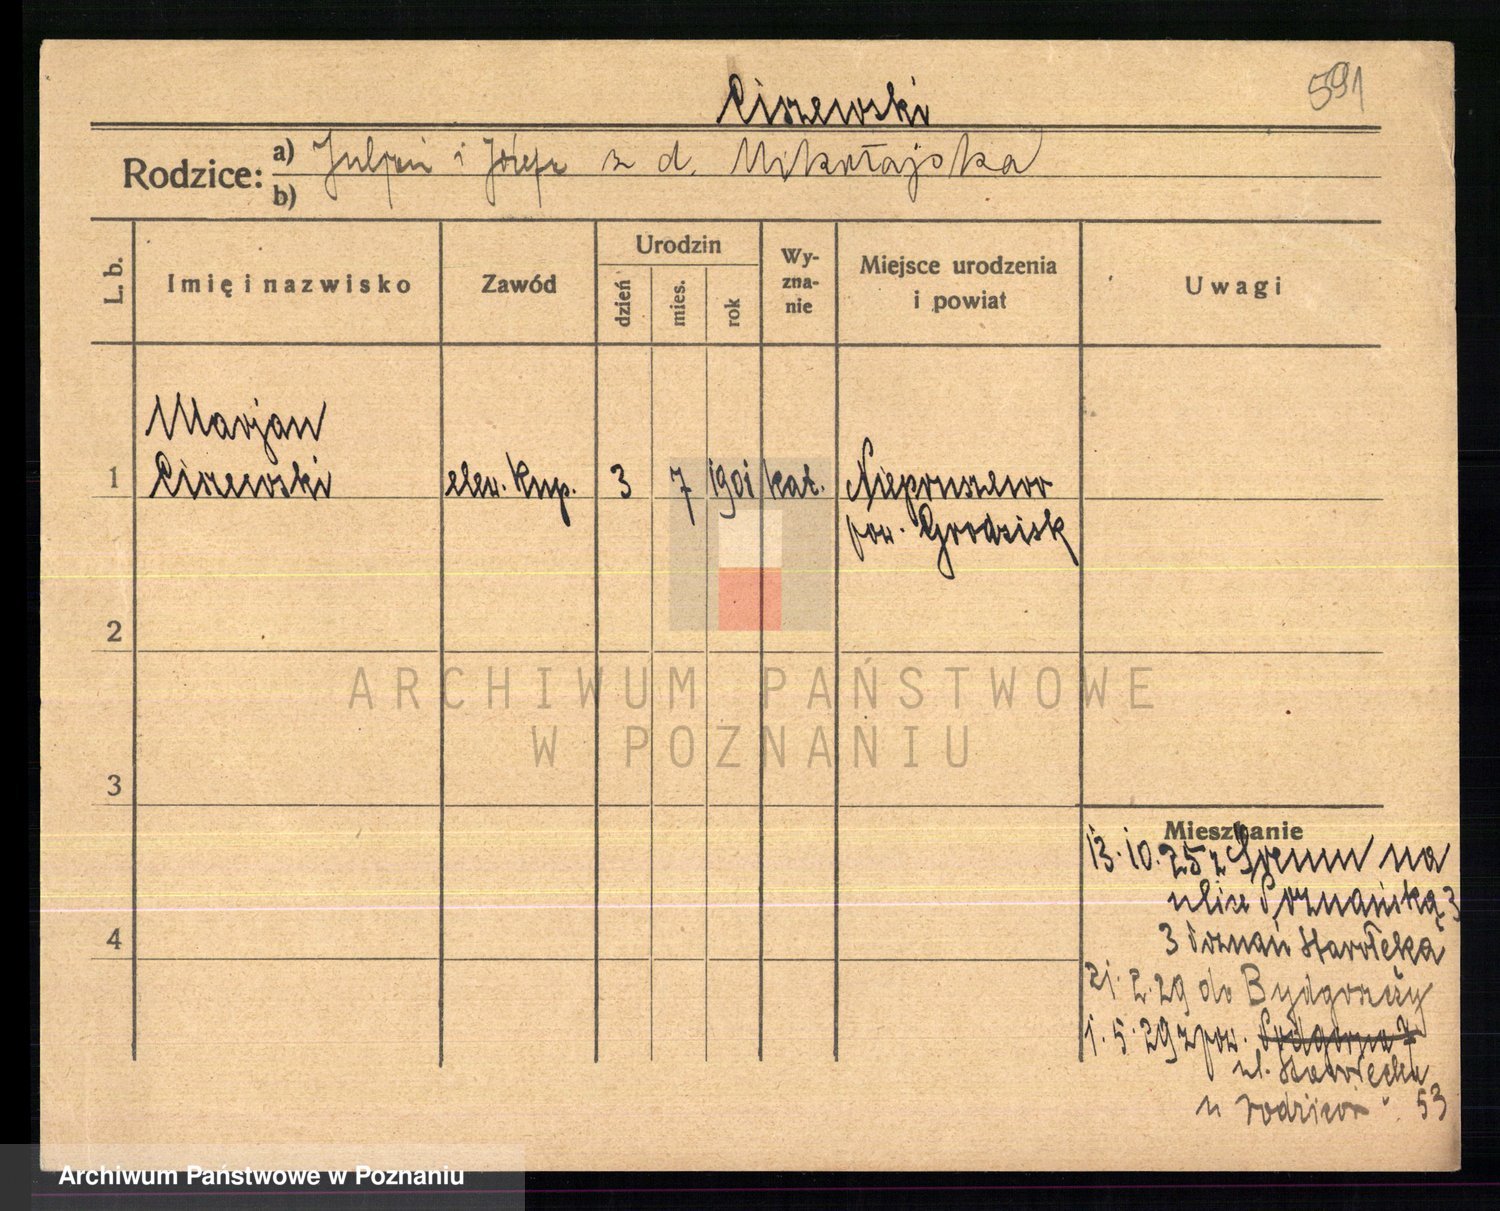 591
Ciszewski
Rodzice:
a) Juljan i Józefa z d. Mikołajska
b)
L. b.
Imię i nazwisko
Zawód
Urodzin
dzień
mies.
rok
Wy-
zna-
nie
Miejsce urodzenia
i powiat
Uwagi
Marjan
1 Ciszewski elew. kup. 3 7 1901 kat. Niepruszewo
pow. Grodzisk
2
3
4
Mieszkanie
13.10.25 z Śremu na
ulice Poznańską 3
3 Poznań Starołęka
21.2.29 do Bydgoszczy
1.5.29 z pow. Podgorna 7
ul. Starołęcka
u rodziców 53
ARCHIWUM PAŃSTWOWE
W POZNANIU
Archiwum Państwowe w Poznaniu